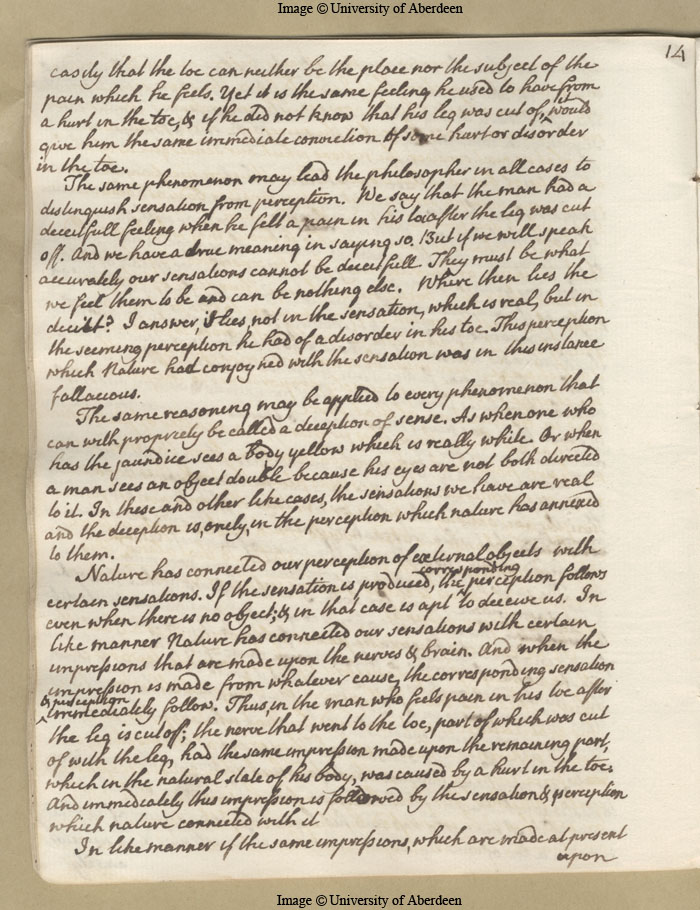 Image © University of Aberdeen
14
easily that the toe can neither be the place nor the subject of the
pain which he feels. Yet it is the same feeling he used to have from
a hurt in the toe, & if he did not know that his leg was cut of, it would
give him the same immediate conviction of some hurt or disorder
in the toe.
The same phenomenon may lead the philosopher in all cases to
distinguish sensation from perception. We say that the man had a
deceitfull feeling when he felt a pain in his toe after the leg was cut
off. And we have a true meaning in saying so. But if we will speak
accurately our sensations cannot be deceitfull They must be what
we feel them to be and can be nothing else. Where then lies the
deceit? I answer, it lies, not in the sensation, which is real, but in
the seeming perception he had of a disorder in his toe. This perception
which Nature had conjoyned with the sensation was in this instance
fallacious.
The same reasoning may be applied to every phenomenon that
can with propriety be called a deception of sense. As when one who
has the jaundice sees a body yellow which is really white. Or when
a man sees an object double because his eyes are not both directed
to it. In these and other like cases, the sensations we have are real
and the deception is, onely, in the perception which nature has annexed
to them.
Nature has connected our perception of external objects with
certain sensations. If the sensation is produced, the corresponding perception follows
even when there is no object; & in that case is apt to deceive us. In
like manner Nature has connected our sensations with certain
impressions that are made upon the nerves & brain. And when the
impression is made from whatever cause, the corresponding sensation
& perception immediately follow. Thus, in the man who feels pain in his toe after
the leg is cut off; the nerve that went to the toe, part of which was cut
of with the leg, had the same impression made upon the remaining part,
which in the natural state of his body, was caused by a hurt in the toe.
And immediately this impression is followed by the sensation & perception
which nature connected with it
In like manner if the same impressions, which are made at present
upon
Image © University of Aberdeen